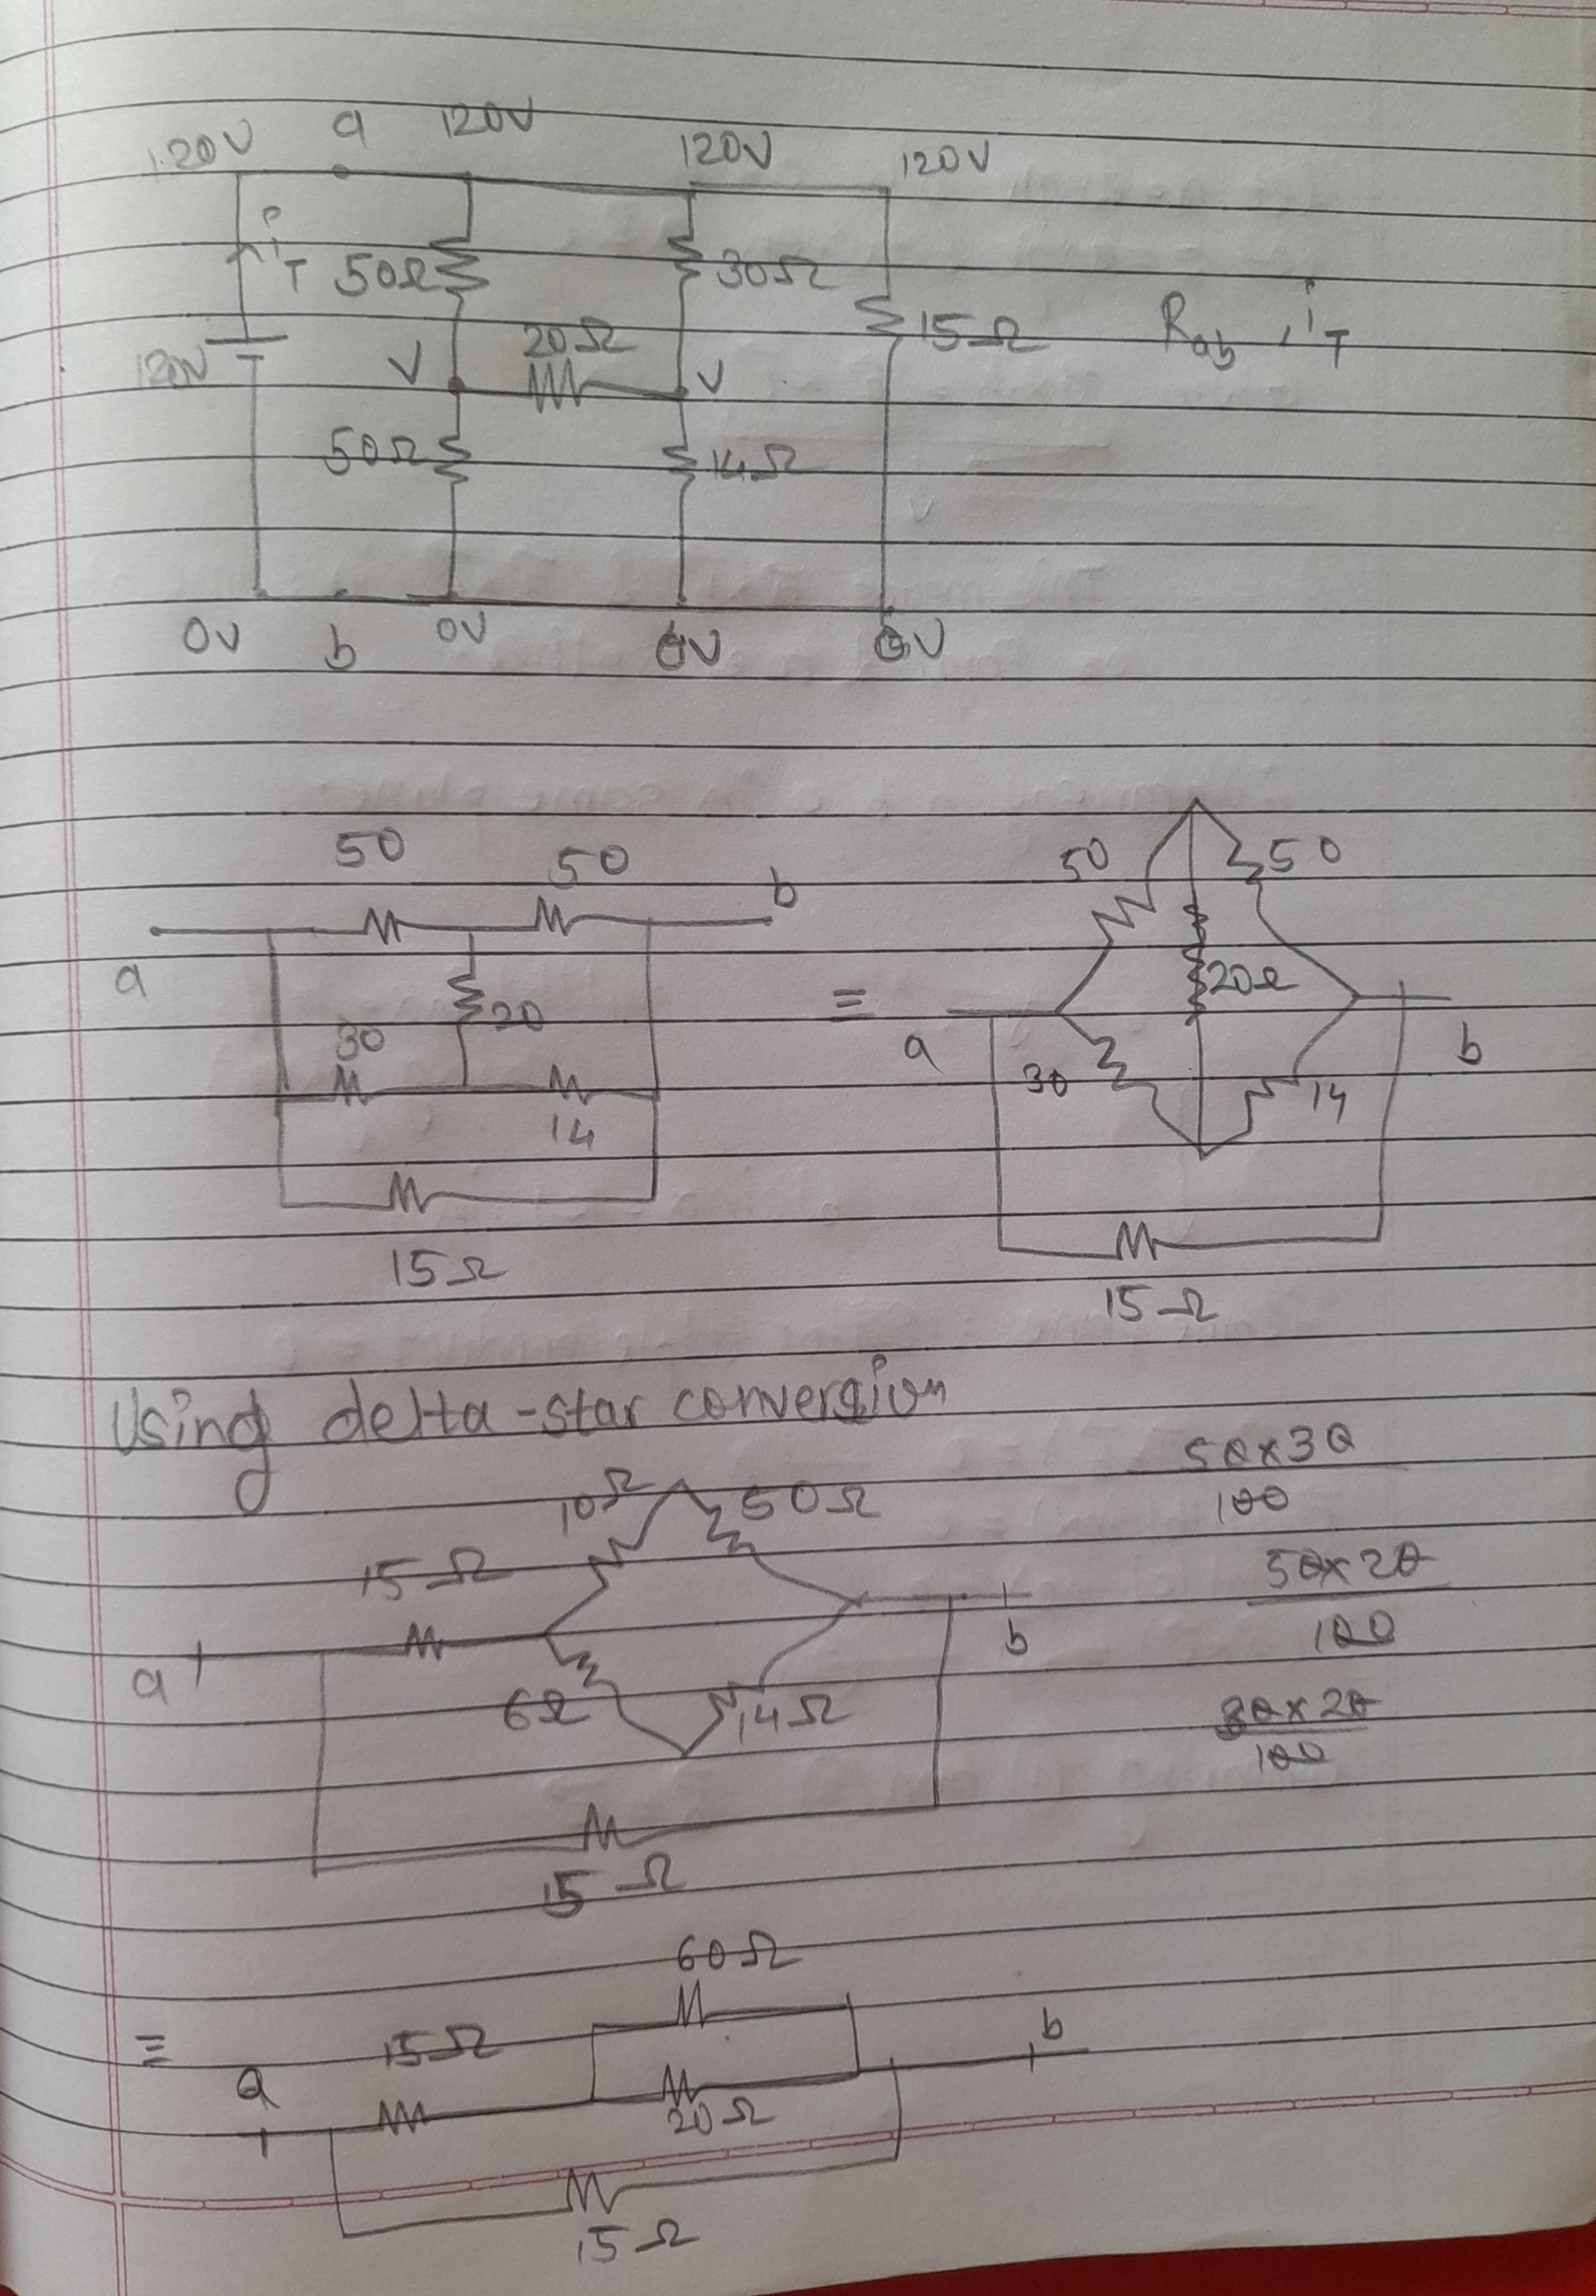 120V a 120V 120V 120V
iT 50Ω 30Ω
120V V 20Ω V 15Ω Rab, iT
50Ω 14Ω
0V b 0V 0V 0V
50 50 b
a 20
30 14
15Ω
≡
50 50
20Ω
a b
30 14
15Ω
Using delta-star conversion
10Ω 50Ω 50×30
100
15Ω 50×20
100
a b
6Ω 14Ω 30×20
100
15Ω
60Ω
≡ a 15Ω b
20Ω
15Ω